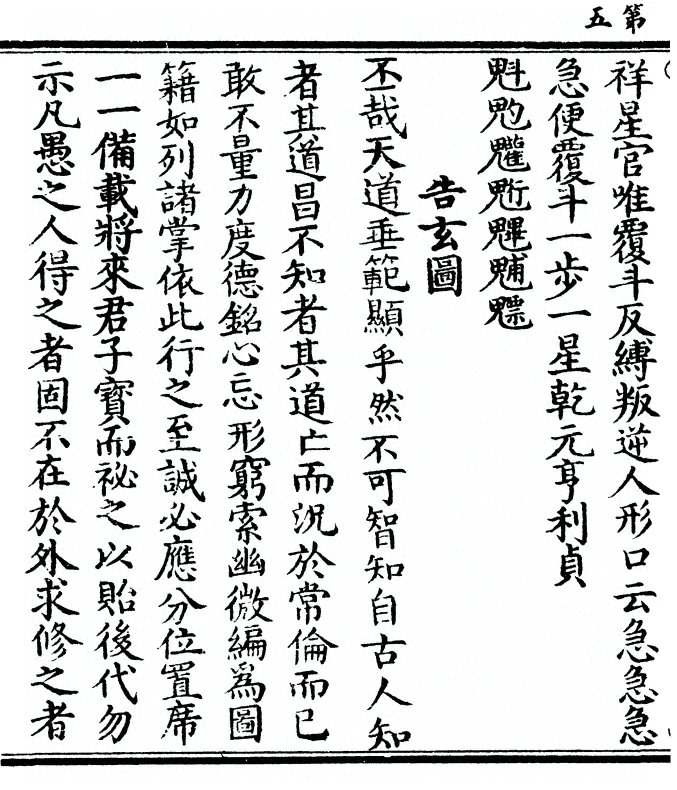 第五
祥星官唯覆斗反縛叛逆人形口云急急急
急便覆斗一步一星乾元亨利貞
魁魓魒
告玄圖
丕哉天道垂範顯乎然不可智知自古人知
者其道昌不知者其道亡而況於常倫而已
敢不量力度德銘心忘形窮索幽微編爲圖
籍如列諸掌依此行之至誠必應分位置席
一一備載將來君子寶而祕之以貽後代勿
示凡愚之人得之者固不在於外求修之者